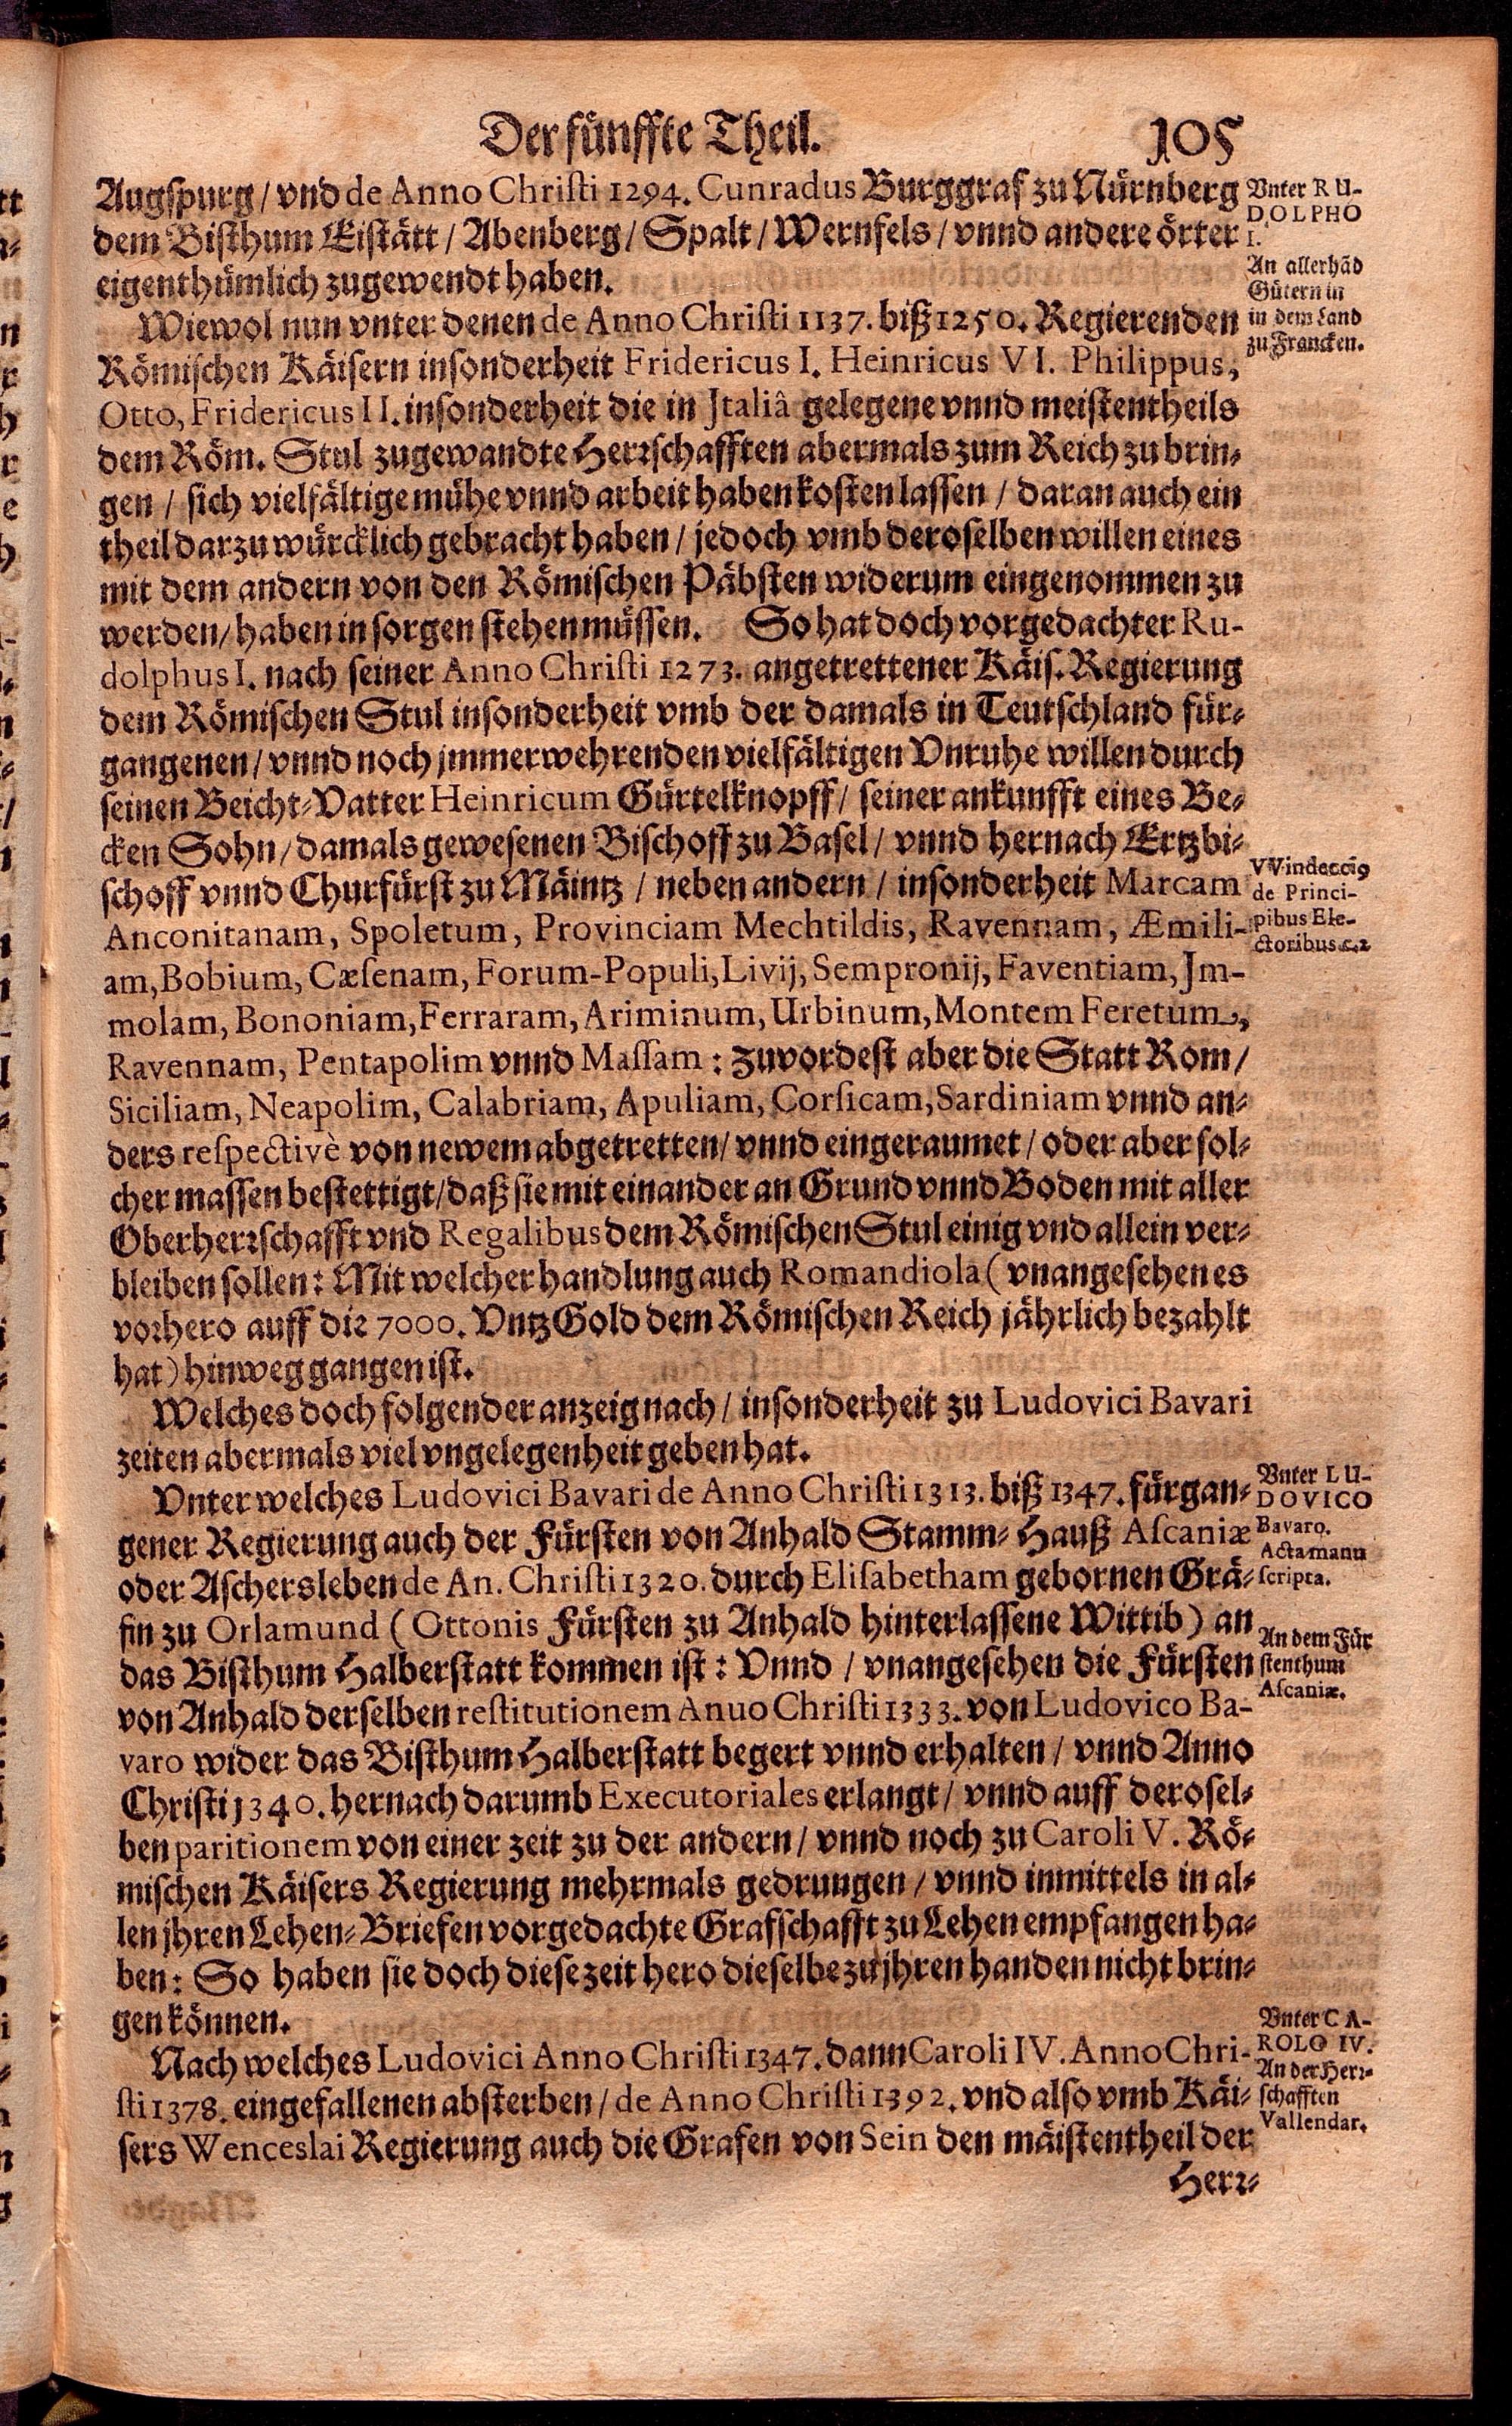 Der fünffte Theil. 105
Augspurg / vnd de Anno Christi 1294. Cunradus Burggraf zu Nürnberg
dem Bisthum Eistätt / Abenberg / Spalt / Wernfels / vnnd andere örter
eigenthümlich zugewendt haben.
Vnter RU-
DOLPHO
I.
An allerhãd
Gütern in
in dem Land
zu Francken.
Wiewol nun vnter denen de Anno Christi 1137. biß 1250. Regierenden
Römischen Käisern insonderheit Fridericus I. Heinricus VI. Philippus,
Otto, Fridericus II. insonderheit die in Jtaliâ gelegene vnnd meistentheils
dem Röm. Stul zugewandte Herrschafften abermals zum Reich zu brin-
gen / sich vielfältige mühe vnnd arbeit haben kosten lassen / daran auch ein
theil darzu würcklich gebracht haben / jedoch vmb deroselben willen eines
mit dem andern von den Römischen Päbsten widerum eingenommen zu
werden / haben in sorgen stehen müssen. So hat doch vorgedachter Ru-
dolphus I. nach seiner Anno Christi 1273. angetrettener Käis. Regierung
dem Römischen Stul insonderheit vmb der damals in Teutschland für-
gangenen / vnnd noch jmmerwehrenden vielfältigen Vnruhe willen durch
seinen Beicht-Vatter Heinricum Gürtelknopff / seiner ankunfft eines Be-
cken Sohn / damals gewesenen Bischoff zu Basel / vnnd hernach Ertzbi-
schoff vnnd Churfürst zu Mäintz / neben andern / insonderheit Marcam
Anconitanam, Spoletum, Provinciam Mechtildis, Ravennam, Æmili-
am, Bobium, Cæsenam, Forum-Populi, Livij, Sempronij, Faventiam, Jm-
molam, Bononiam, Ferraram, Ariminum, Urbinum, Montem Feretum,
Ravennam, Pentapolim vnnd Massam : zuvordest aber die Statt Rom /
Siciliam, Neapolim, Calabriam, Apuliam, Corsicam, Sardiniam vnnd an-
ders respectivè von newem abgetretten / vnnd eingeraumet / oder aber sol-
cher massen bestettigt / daß sie mit einander an Grund vnnd Boden mit aller
Oberherrschafft vnd Regalibus dem Römischen Stul einig vnd allein ver-
bleiben sollen : Mit welcher handlung auch Romandiola ( vnangesehen es
vorhero auff die 7000. Vntz Gold dem Römischen Reich jährlich bezahlt
hat ) hinweg gangen ist.
de Princi-
pibus Ele-
ctoribus
Welches doch folgender anzeig nach / insonderheit zu Ludovici Bavari
zeiten abermals viel vngelegenheit geben hat.
Vnter welches Ludovici Bavari de Anno Christi 1313. biß 1347. fürgan-
gener Regierung auch der Fürsten von Anhald Stamm-Hauß Ascaniæ
oder Aschersleben de An. Christi 1320. durch Elisabetham gebornen Grä-
fin zu Orlamund ( Ottonis Fürsten zu Anhald hinterlassene Wittib ) an
das Bisthum Halberstatt kommen ist : Vnnd / vnangesehen die Fürsten
von Anhald derselben restitutionem Anuo Christi 1333. von Ludovico Ba-
varo wider das Bisthum Halberstatt begert vnnd erhalten / vnnd Anno
Christi 1340. hernach darumb Executoriales erlangt / vnnd auff derosel-
ben paritionem von einer zeit zu der andern / vnnd noch zu Caroli V. Rö-
mischen Käisers Regierung mehrmals gedrungen / vnnd inmittels in al-
len jhren Lehen-Briefen vorgedachte Grafschafft zu Lehen empfangen ha-
ben : So haben sie doch diese zeit hero dieselbe zu jhren handen nicht brin-
gen können.
Vnter LU-
DOVICO
Bavaro.
Acta manu
scripta.
An dem Für
stenthum
Ascaniæ.
Nach welches Ludovici Anno Christi 1347. dann Caroli IV. Anno Chri-
sti 1378. eingefallenen absterben / de Anno Christi 1392. vnd also vmb Käi-
sers Wenceslai Regierung auch die Grafen von Sein den mäistentheil der
Vnter CA-
ROLO IV.
An der Herr-
schafften
Vallendar.
Herr-